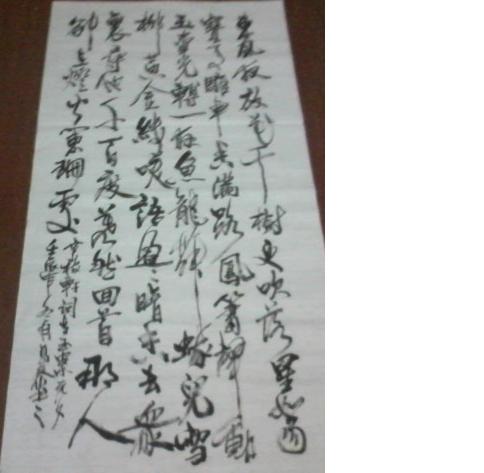 東風夜放花千樹更吹落星如雨
寶馬雕車香滿路鳳簫聲動
玉壺光轉一夜魚龍舞蛾兒雪
柳黃金縷笑語盈盈暗香去眾
裏尋他千百度驀然回首那人
卻在燈火闌珊處
稼軒詞青玉案元夕